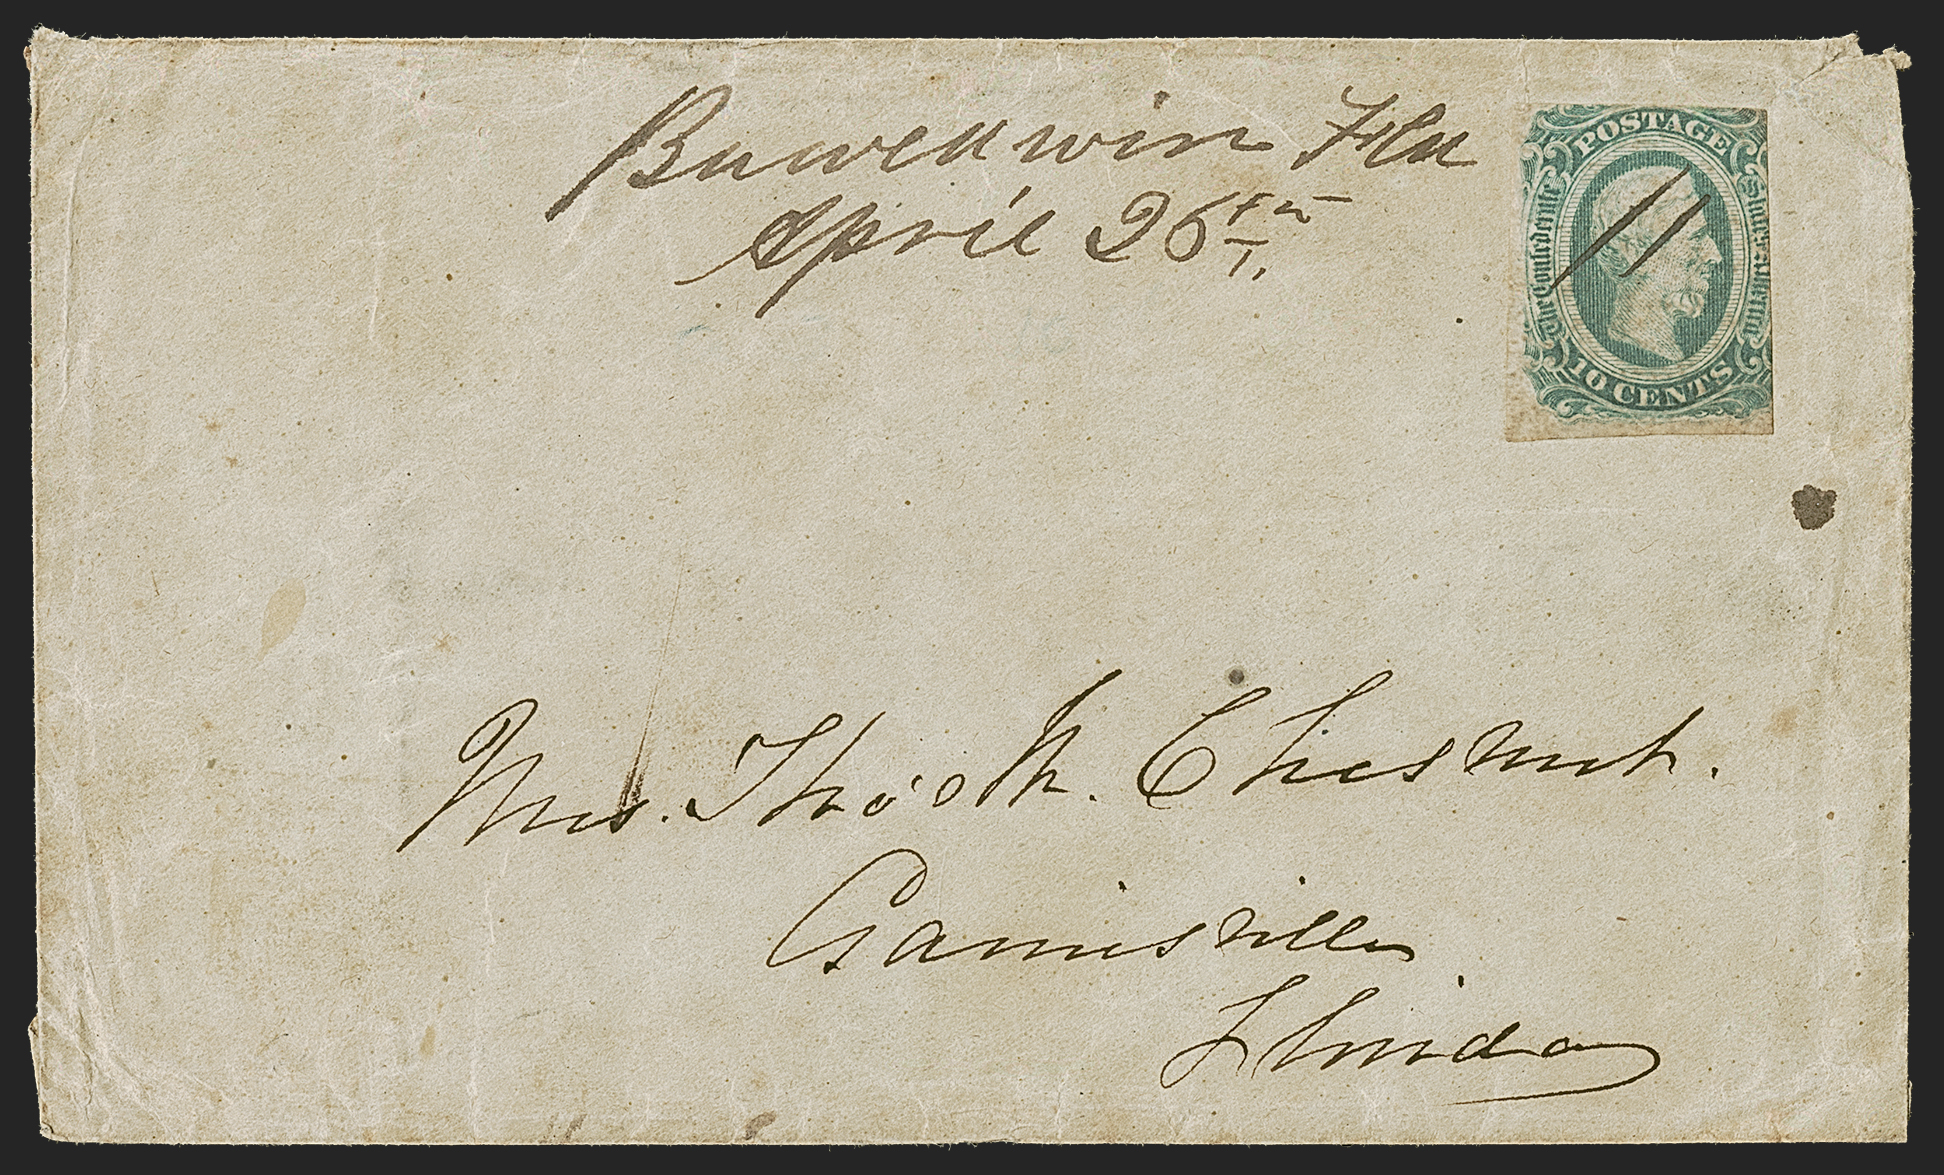 Bawldwin Fla
April 26th
POSTAGE
The Confederate States of America
10 CENTS
Mrs. Thos M. Chesnut.
Gainisville
Florida